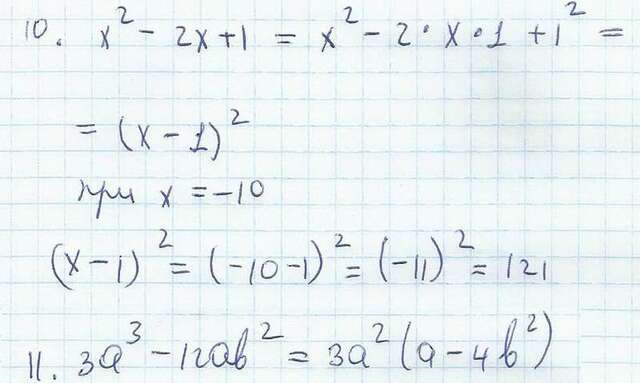 10. x² - 2x+1 = x² - 2·x·1 + 1² =
= (x - 1)²
при x = -10
(x-1)² = (-10-1)² = (-11)² = 121
11. 3a³ - 12ab² = 3a² (a - 4b²)